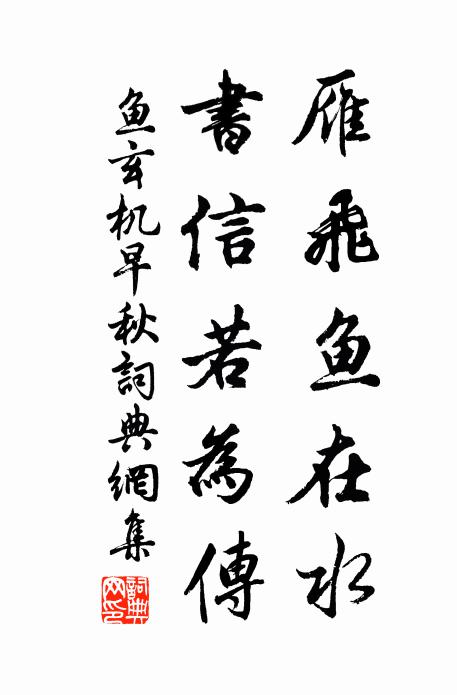 雁飛魚在水
書信若為傳
魚玄机早秋詞典網集
詞典網印